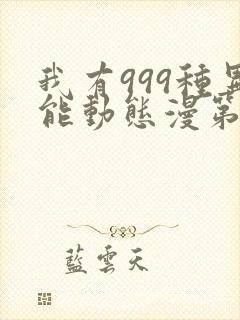 我有999種異
能動態漫第
藍雲天